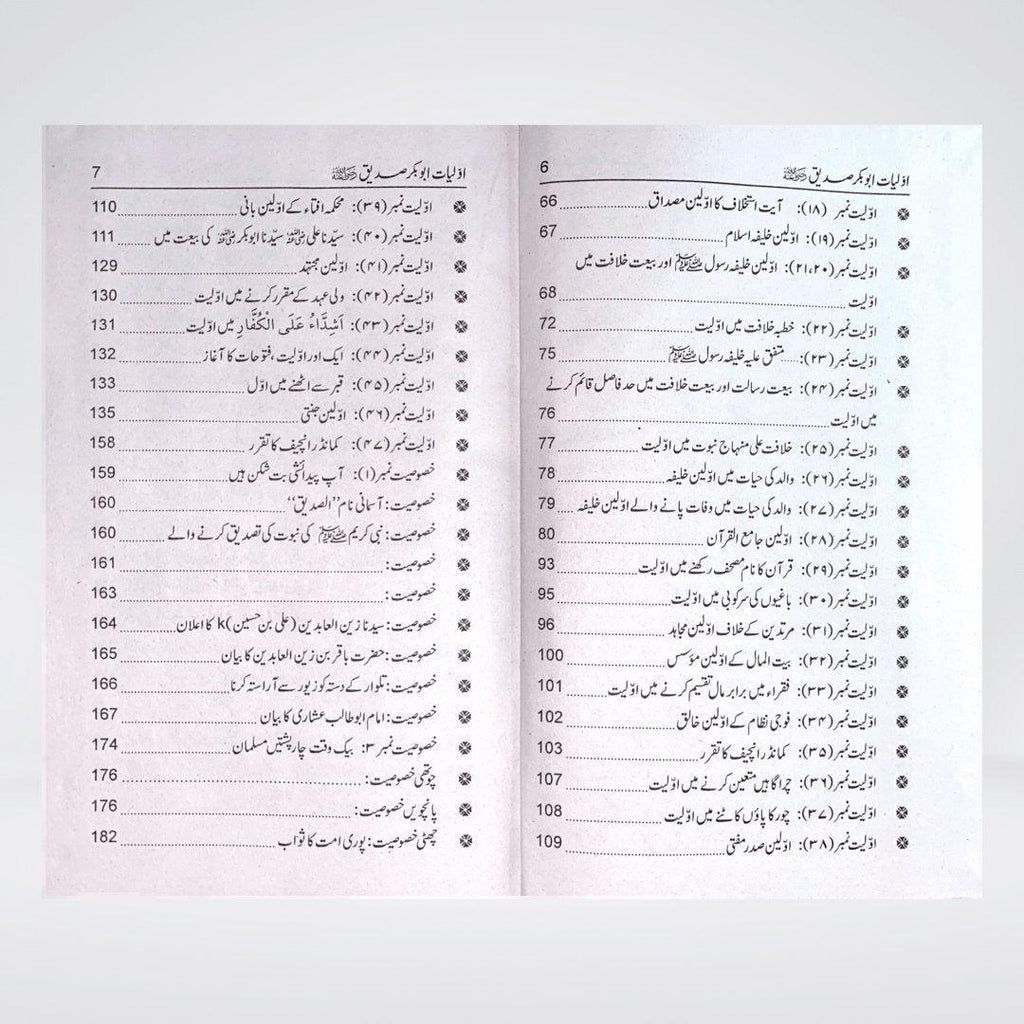 6 اوّلیات ابوبکر صدیق
اوّلیت نمبر (۱۸): آیت استخلاف کا اوّلین مصداق 66
اوّلیت نمبر (۱۹): اوّلین خلیفہ اسلام 67
اوّلیت نمبر (۲۰،۲۱): اوّلین خلیفہ رسول ﷺ اور بیعت خلافت میں
اوّلیت 68
اوّلیت نمبر (۲۲): خطبہ خلافت میں اوّلیت 72
اوّلیت نمبر (۲۳): متفق علیہ خلیفہ رسول ﷺ 75
اوّلیت نمبر (۲۴): بیعت رسالت اور بیعت خلافت میں حد فاصل قائم کرنے
میں اوّلیت 76
اوّلیت نمبر (۲۵): خلافت علی منہاج نبوت میں اوّلیت 77
اوّلیت نمبر (۲۶): والد کی حیات میں اوّلین خلیفہ 78
اوّلیت نمبر (۲۷): والد کی حیات میں وفات پانے والے اوّلین خلیفہ 79
اوّلیت نمبر (۲۸): اوّلین جامع القرآن 80
اوّلیت نمبر (۲۹): قرآن کا نام مصحف رکھنے میں اوّلیت 93
اوّلیت نمبر (۳۰): باغیوں کی سرکوبی میں اوّلیت 95
اوّلیت نمبر (۳۱): مرتدین کے خلاف اوّلین مجاہد 96
اوّلیت نمبر (۳۲): بیت المال کے اوّلین مؤسس 100
اوّلیت نمبر (۳۳): فقراء میں برابر مال تقسیم کرنے میں اوّلیت 101
اوّلیت نمبر (۳۴): فوجی نظام کے اوّلین خالق 102
اوّلیت نمبر (۳۵): کمانڈر انچیف کا تقرر 103
اوّلیت نمبر (۳۶): چراگاہیں متعین کرنے میں اوّلیت 107
اوّلیت نمبر (۳۷): چور کا پاؤں کاٹنے میں اوّلیت 108
اوّلیت نمبر (۳۸): اوّلین صدر مفتی 109
7 اوّلیات ابوبکر صدیق
اوّلیت نمبر (۳۹): محکمہ افتاء کے اوّلین بانی 110
اوّلیت نمبر (۴۰): سیّدنا علی رضی اللہ عنہ سیّدنا ابوبکر رضی اللہ عنہ کی بیعت میں 111
اوّلیت نمبر (۴۱): اوّلین مجتہد 129
اوّلیت نمبر (۴۲): ولی عہد کے مقرر کرنے میں اوّلیت 130
اوّلیت نمبر (۴۳): اَشِدَّاءُ عَلَى الْكُفَّارِ میں اوّلیت 131
اوّلیت نمبر (۴۴): ایک اور اوّلیت، فتوحات کا آغاز 132
اوّلیت نمبر (۴۵): قبر سے اٹھنے میں اوّل 133
اوّلیت نمبر (۴۶): اوّلین جنتی 135
اوّلیت نمبر (۴۷): کمانڈر انچیف کا تقرر 158
خصوصیت نمبر (۱): آپ پیدائشی بت شکن ہیں 159
خصوصیت: آسمانی نام ”الصدیق“ 160
خصوصیت: نبی کریم ﷺ کی نبوت کی تصدیق کرنے والے 160
خصوصیت: 161
خصوصیت: 163
خصوصیت: سیدنا زین العابدین (علی بن حسین) k کا اعلان 164
خصوصیت: حضرت باقر بن زین العابدین کا بیان 165
خصوصیت: تلوار کے دستہ کو زیور سے آراستہ کرنا 166
خصوصیت: امام ابوطالب عشاری کا بیان 167
خصوصیت نمبر ۳: بیک وقت چار پشتیں مسلمان 174
چوتھی خصوصیت: 176
پانچویں خصوصیت: 176
چھٹی خصوصیت: پوری امت کا ثواب 182